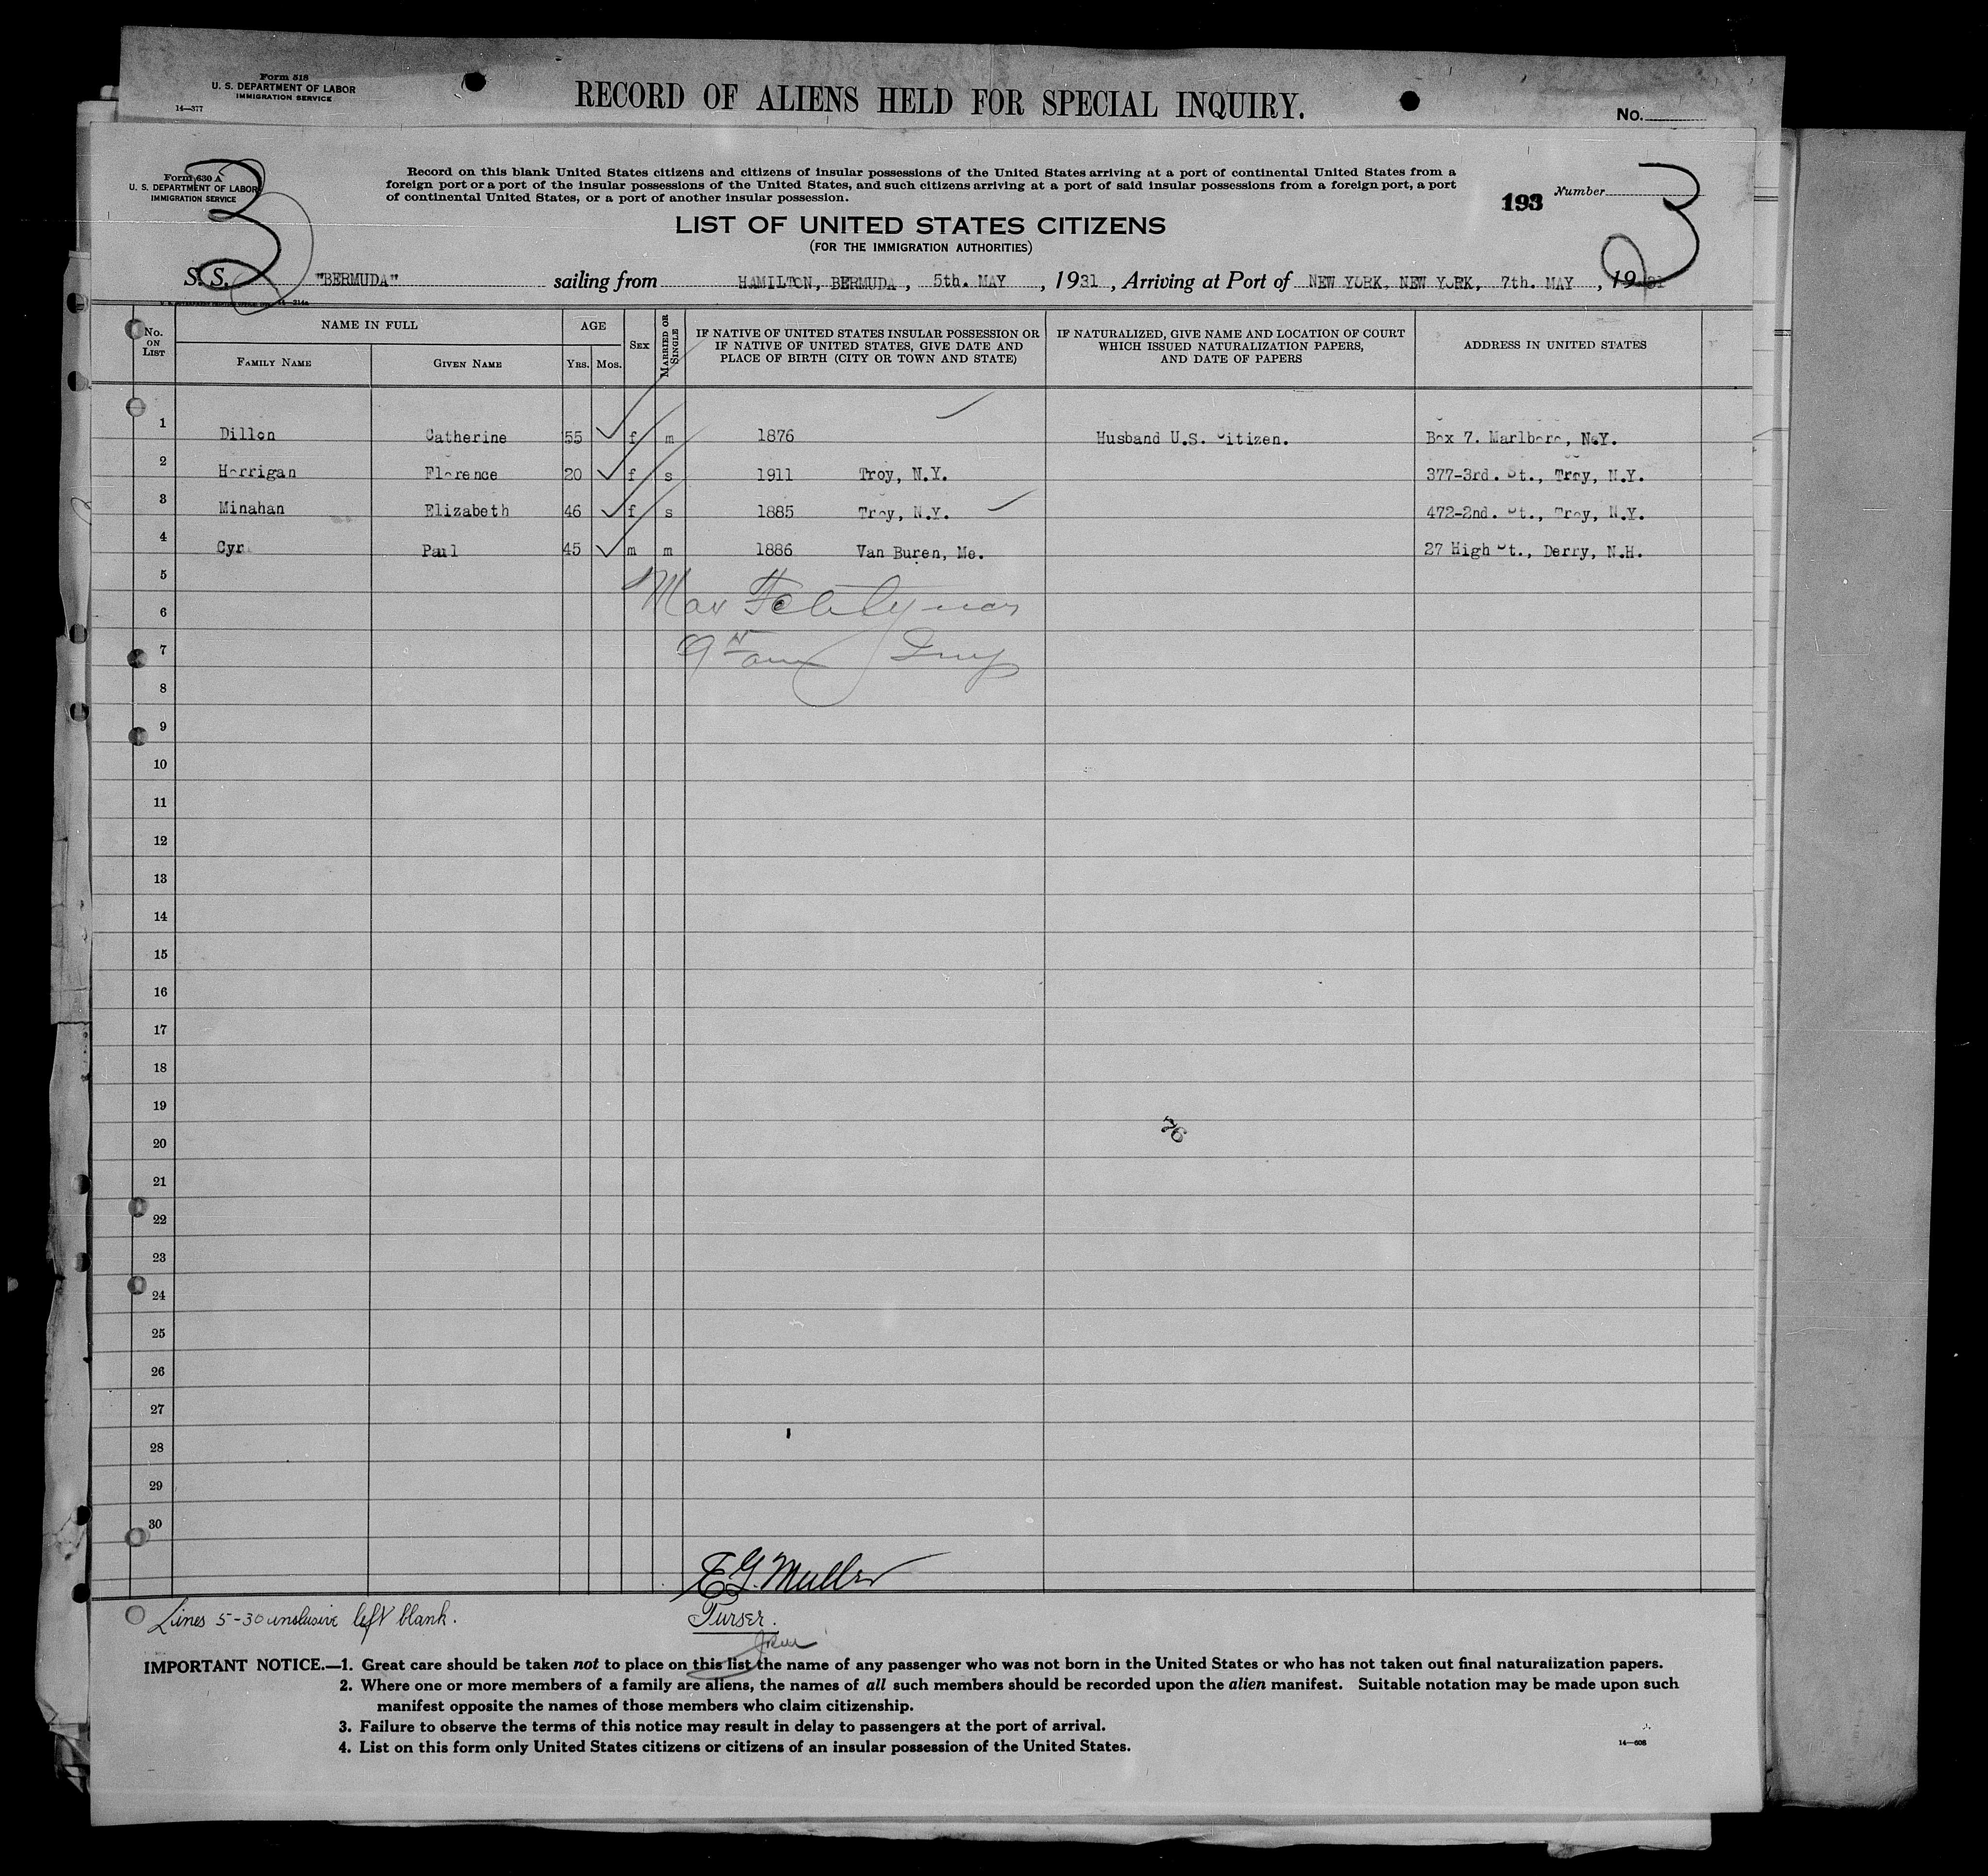 Form 518
U. S. DEPARTMENT OF LABOR
IMMIGRATION SERVICE
14—377
RECORD OF ALIENS HELD FOR SPECIAL INQUIRY.
No.
3
Form 630 A
U. S. DEPARTMENT OF LABOR
IMMIGRATION SERVICE
Record on this blank United States citizens and citizens of insular possessions of the United States arriving at a port of continental United States from a
foreign port or a port of the insular possessions of the United States, and such citizens arriving at a port of said insular possessions from a foreign port, a port
of continental United States, or a port of another insular possession.
193 Number
3
LIST OF UNITED STATES CITIZENS
(FOR THE IMMIGRATION AUTHORITIES)
S. S. "BERMUDA" sailing from HAMILTON, BERMUDA, 5th. MAY, 1931, Arriving at Port of NEW YORK, NEW YORK, 7th. MAY, 1931
No. ON LIST NAME IN FULL FAMILY NAME GIVEN NAME AGE YRS. MOS. SEX MARRIED OR SINGLE IF NATIVE OF UNITED STATES INSULAR POSSESSION OR IF NATIVE OF UNITED STATES, GIVE DATE AND PLACE OF BIRTH (CITY OR TOWN AND STATE) IF NATURALIZED, GIVE NAME AND LOCATION OF COURT WHICH ISSUED NATURALIZATION PAPERS, AND DATE OF PAPERS ADDRESS IN UNITED STATES
1 Dillon Catherine 55 f m 1876 Husband U.S. Citizen. Box 7. Marlboro, N.Y.
2 Horrigan Florence 20 f s 1911 Troy, N.Y. 377-3rd. St., Troy, N.Y.
3 Minahan Elizabeth 46 f s 1885 Troy, N.Y. 472-2nd. St., Troy, N.Y.
4 Cyr Paul 45 m m 1886 Van Buren, Me. 27 High St., Derry, N.H.
5
6
7
8
9
10
11
12
13
14
15
16
17
18
19
20
21
22
23
24
25
26
27
28
29
30
76
E G. Muller
Purser.
Lines 5-30 unslusive left blank.
IMPORTANT NOTICE.—1. Great care should be taken not to place on this list the name of any passenger who was not born in the United States or who has not taken out final naturalization papers.
2. Where one or more members of a family are aliens, the names of all such members should be recorded upon the alien manifest. Suitable notation may be made upon such
manifest opposite the names of those members who claim citizenship.
3. Failure to observe the terms of this notice may result in delay to passengers at the port of arrival.
4. List on this form only United States citizens or citizens of an insular possession of the United States.
14—608